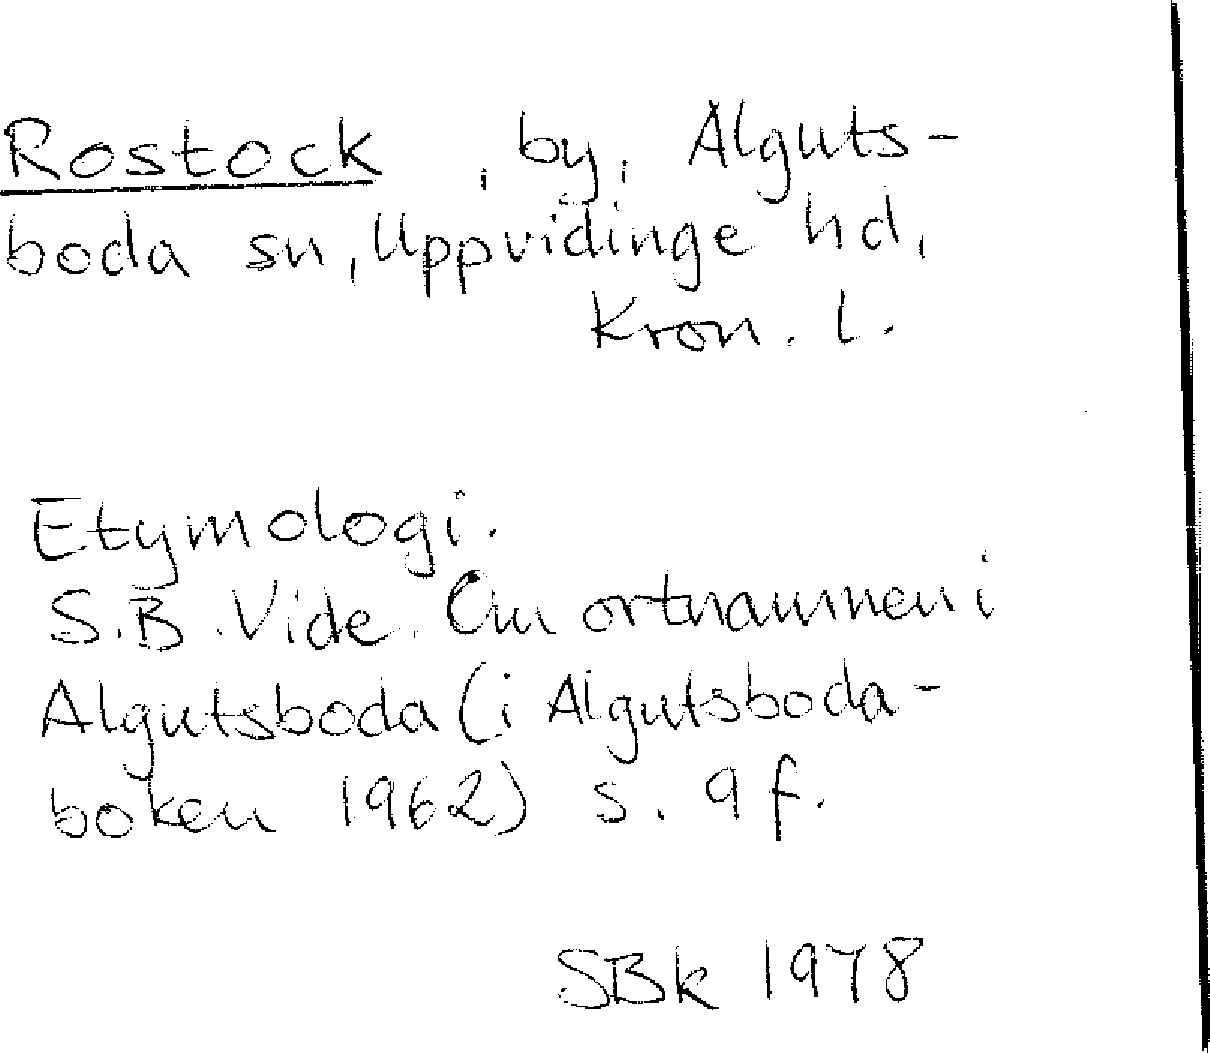 Rostock, by, Alguts-
boda sn, Uppvidinge hd,
Kron. l.
Etymologi.
S.B. Vide. Om ortnamnen i
Algutsboda (i Algutsboda-
boken 1962) s. 9 f.
SBk 1978